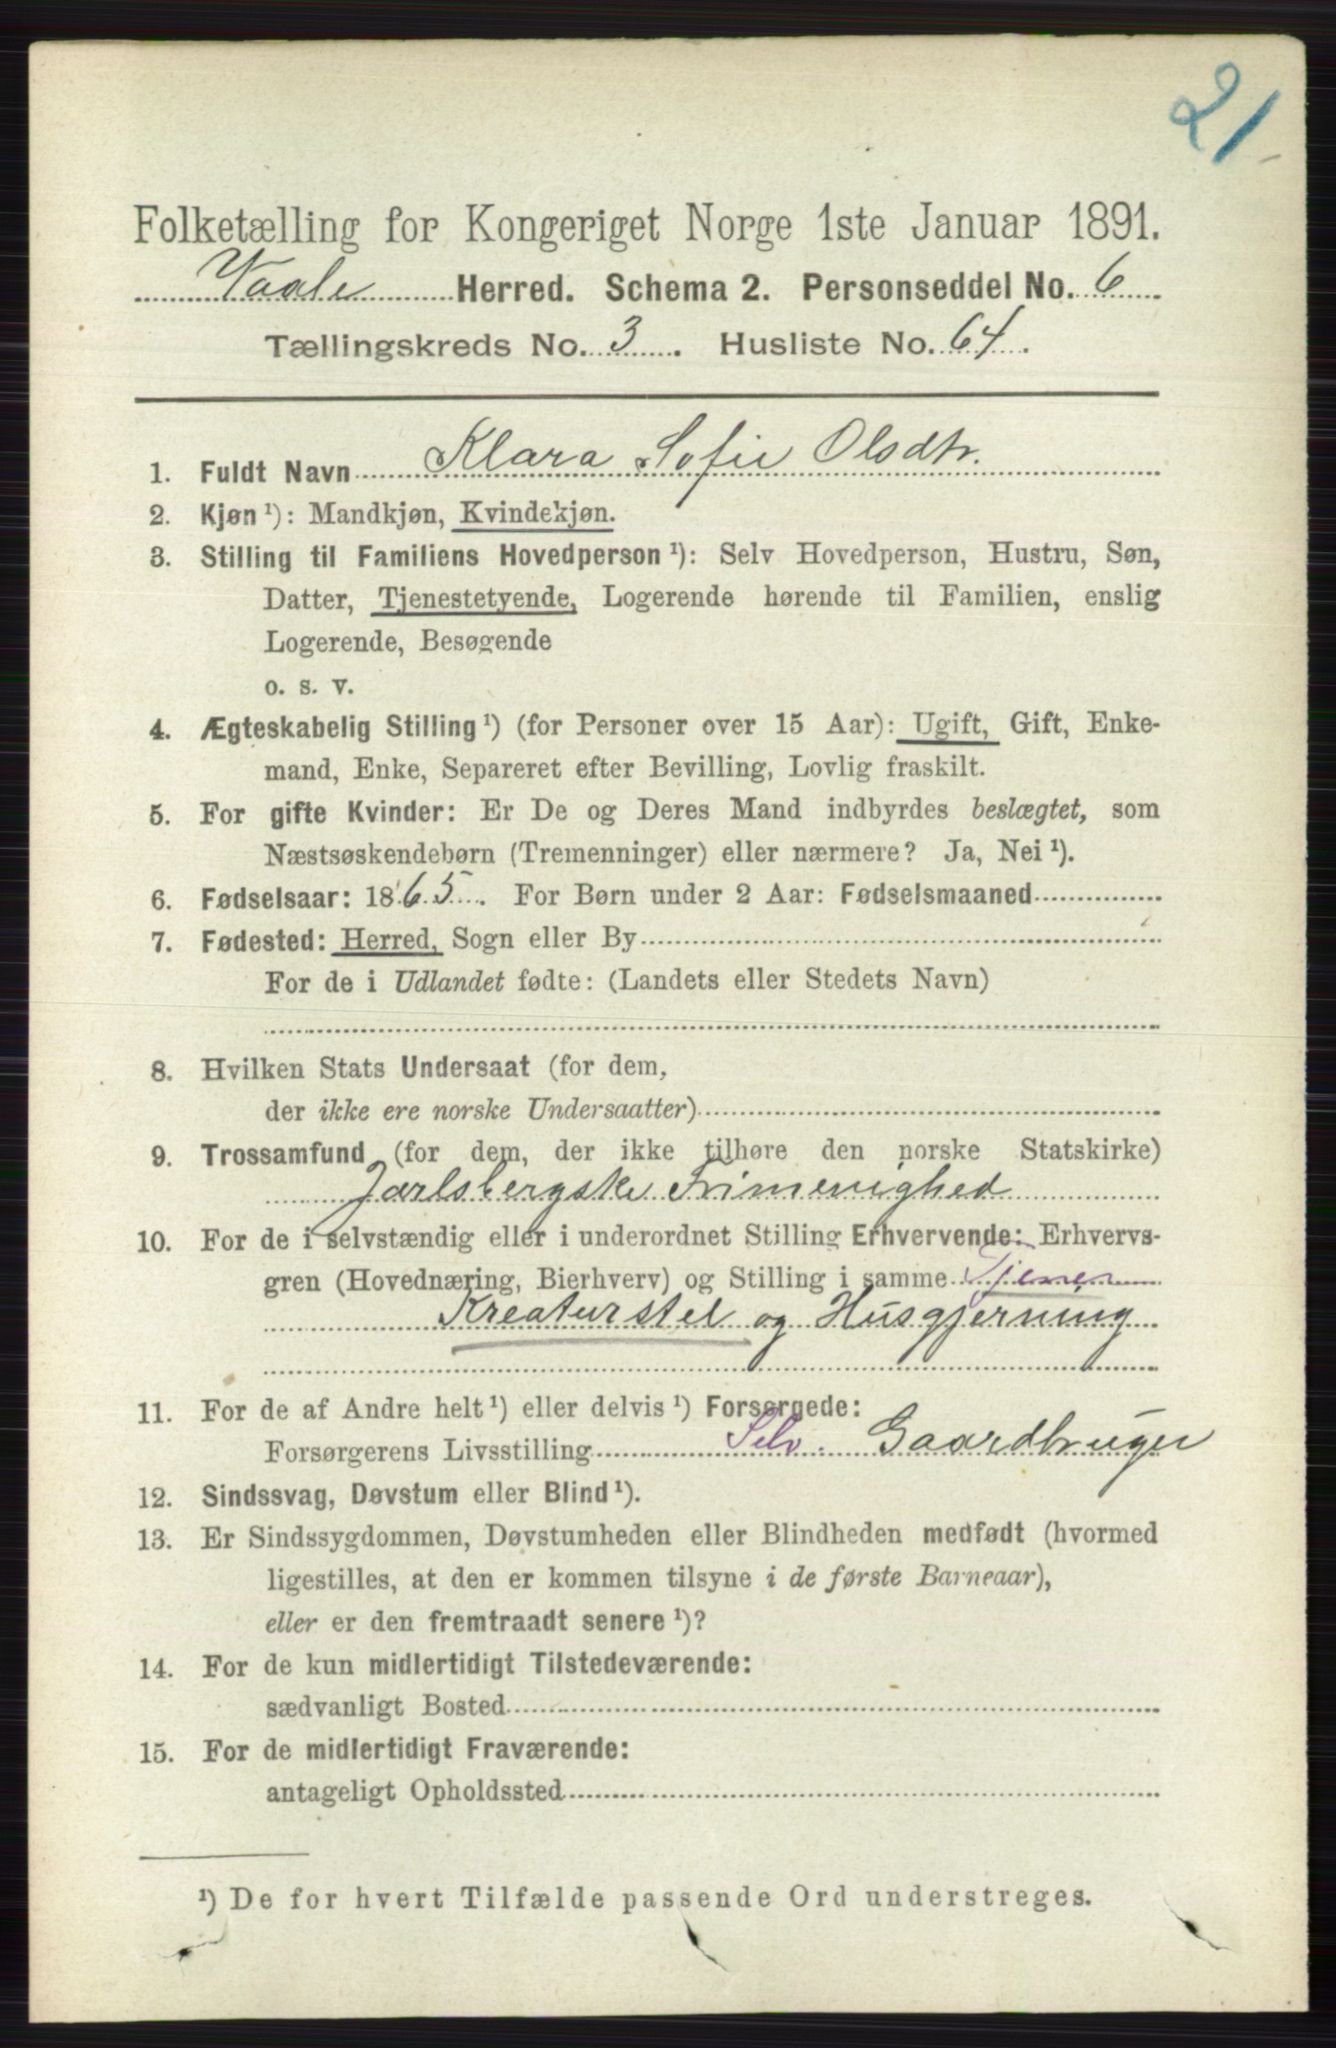 21
Folketælling for Kongeriget Norge 1ste Januar 1891.
Vaale Herred. Schema 2. Personseddel No. 6
Tællingskreds No. 3. Husliste No. 64.
1. Fuldt Navn Klara Sofie Olsdtr.
2. Kjøn ¹): Mandkjøn, Kvindekjøn.
3. Stilling til Familiens Hovedperson ¹): Selv Hovedperson, Hustru, Søn,
Datter, Tjenestetyende, Logerende hørende til Familien, enslig
Logerende, Besøgende
o. s. v.
4. Ægteskabelig Stilling ¹) (for Personer over 15 Aar): Ugift, Gift, Enke-
mand, Enke, Separeret efter Bevilling, Lovlig fraskilt.
5. For gifte Kvinder: Er De og Deres Mand indbyrdes beslægtet, som
Næstsøskendebørn (Tremenninger) eller nærmere? Ja, Nei ¹).
6. Fødselsaar: 1865. For Børn under 2 Aar: Fødselsmaaned
7. Fødested: Herred, Sogn eller By
For de i Udlandet fødte: (Landets eller Stedets Navn)
8. Hvilken Stats Undersaat (for dem,
der ikke ere norske Undersaatter)
9. Trossamfund (for dem, der ikke tilhøre den norske Statskirke)
Jarlsbergske Frimenighed
10. For de i selvstændig eller i underordnet Stilling Erhvervende: Erhvervs-
gren (Hovednæring, Bierhverv) og Stilling i samme Tjener
Kreaturstel og Husgjerning
11. For de af Andre helt ¹) eller delvis ¹) Forsørgede:
Forsørgerens Livsstilling Selv. Gaardbruger
12. Sindssvag, Døvstum eller Blind ¹).
13. Er Sindssygdommen, Døvstumheden eller Blindheden medfødt (hvormed
ligestilles, at den er kommen tilsyne i de første Barneaar),
eller er den fremtraadt senere ¹)?
14. For de kun midlertidigt Tilstedeværende:
sædvanligt Bosted
15. For de midlertidigt Fraværende:
antageligt Opholdssted
¹) De for hvert Tilfælde passende Ord understreges.